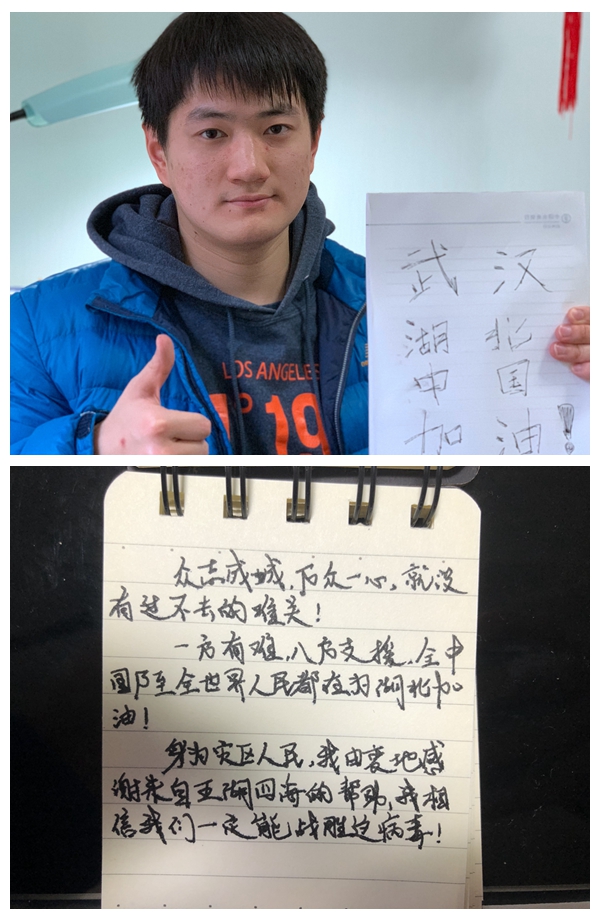 LOS ANGELES
N° 19
武汉
湖北
中国
加油!
众志成城,万众一心,就没
有过不去的难关!
一方有难,八方支援,全中
国乃至全世界人民都在为湖北加
油!
身为灾区人民,我由衷地感
谢来自五湖四海的帮助,我相
信我们一定能战胜这病毒!